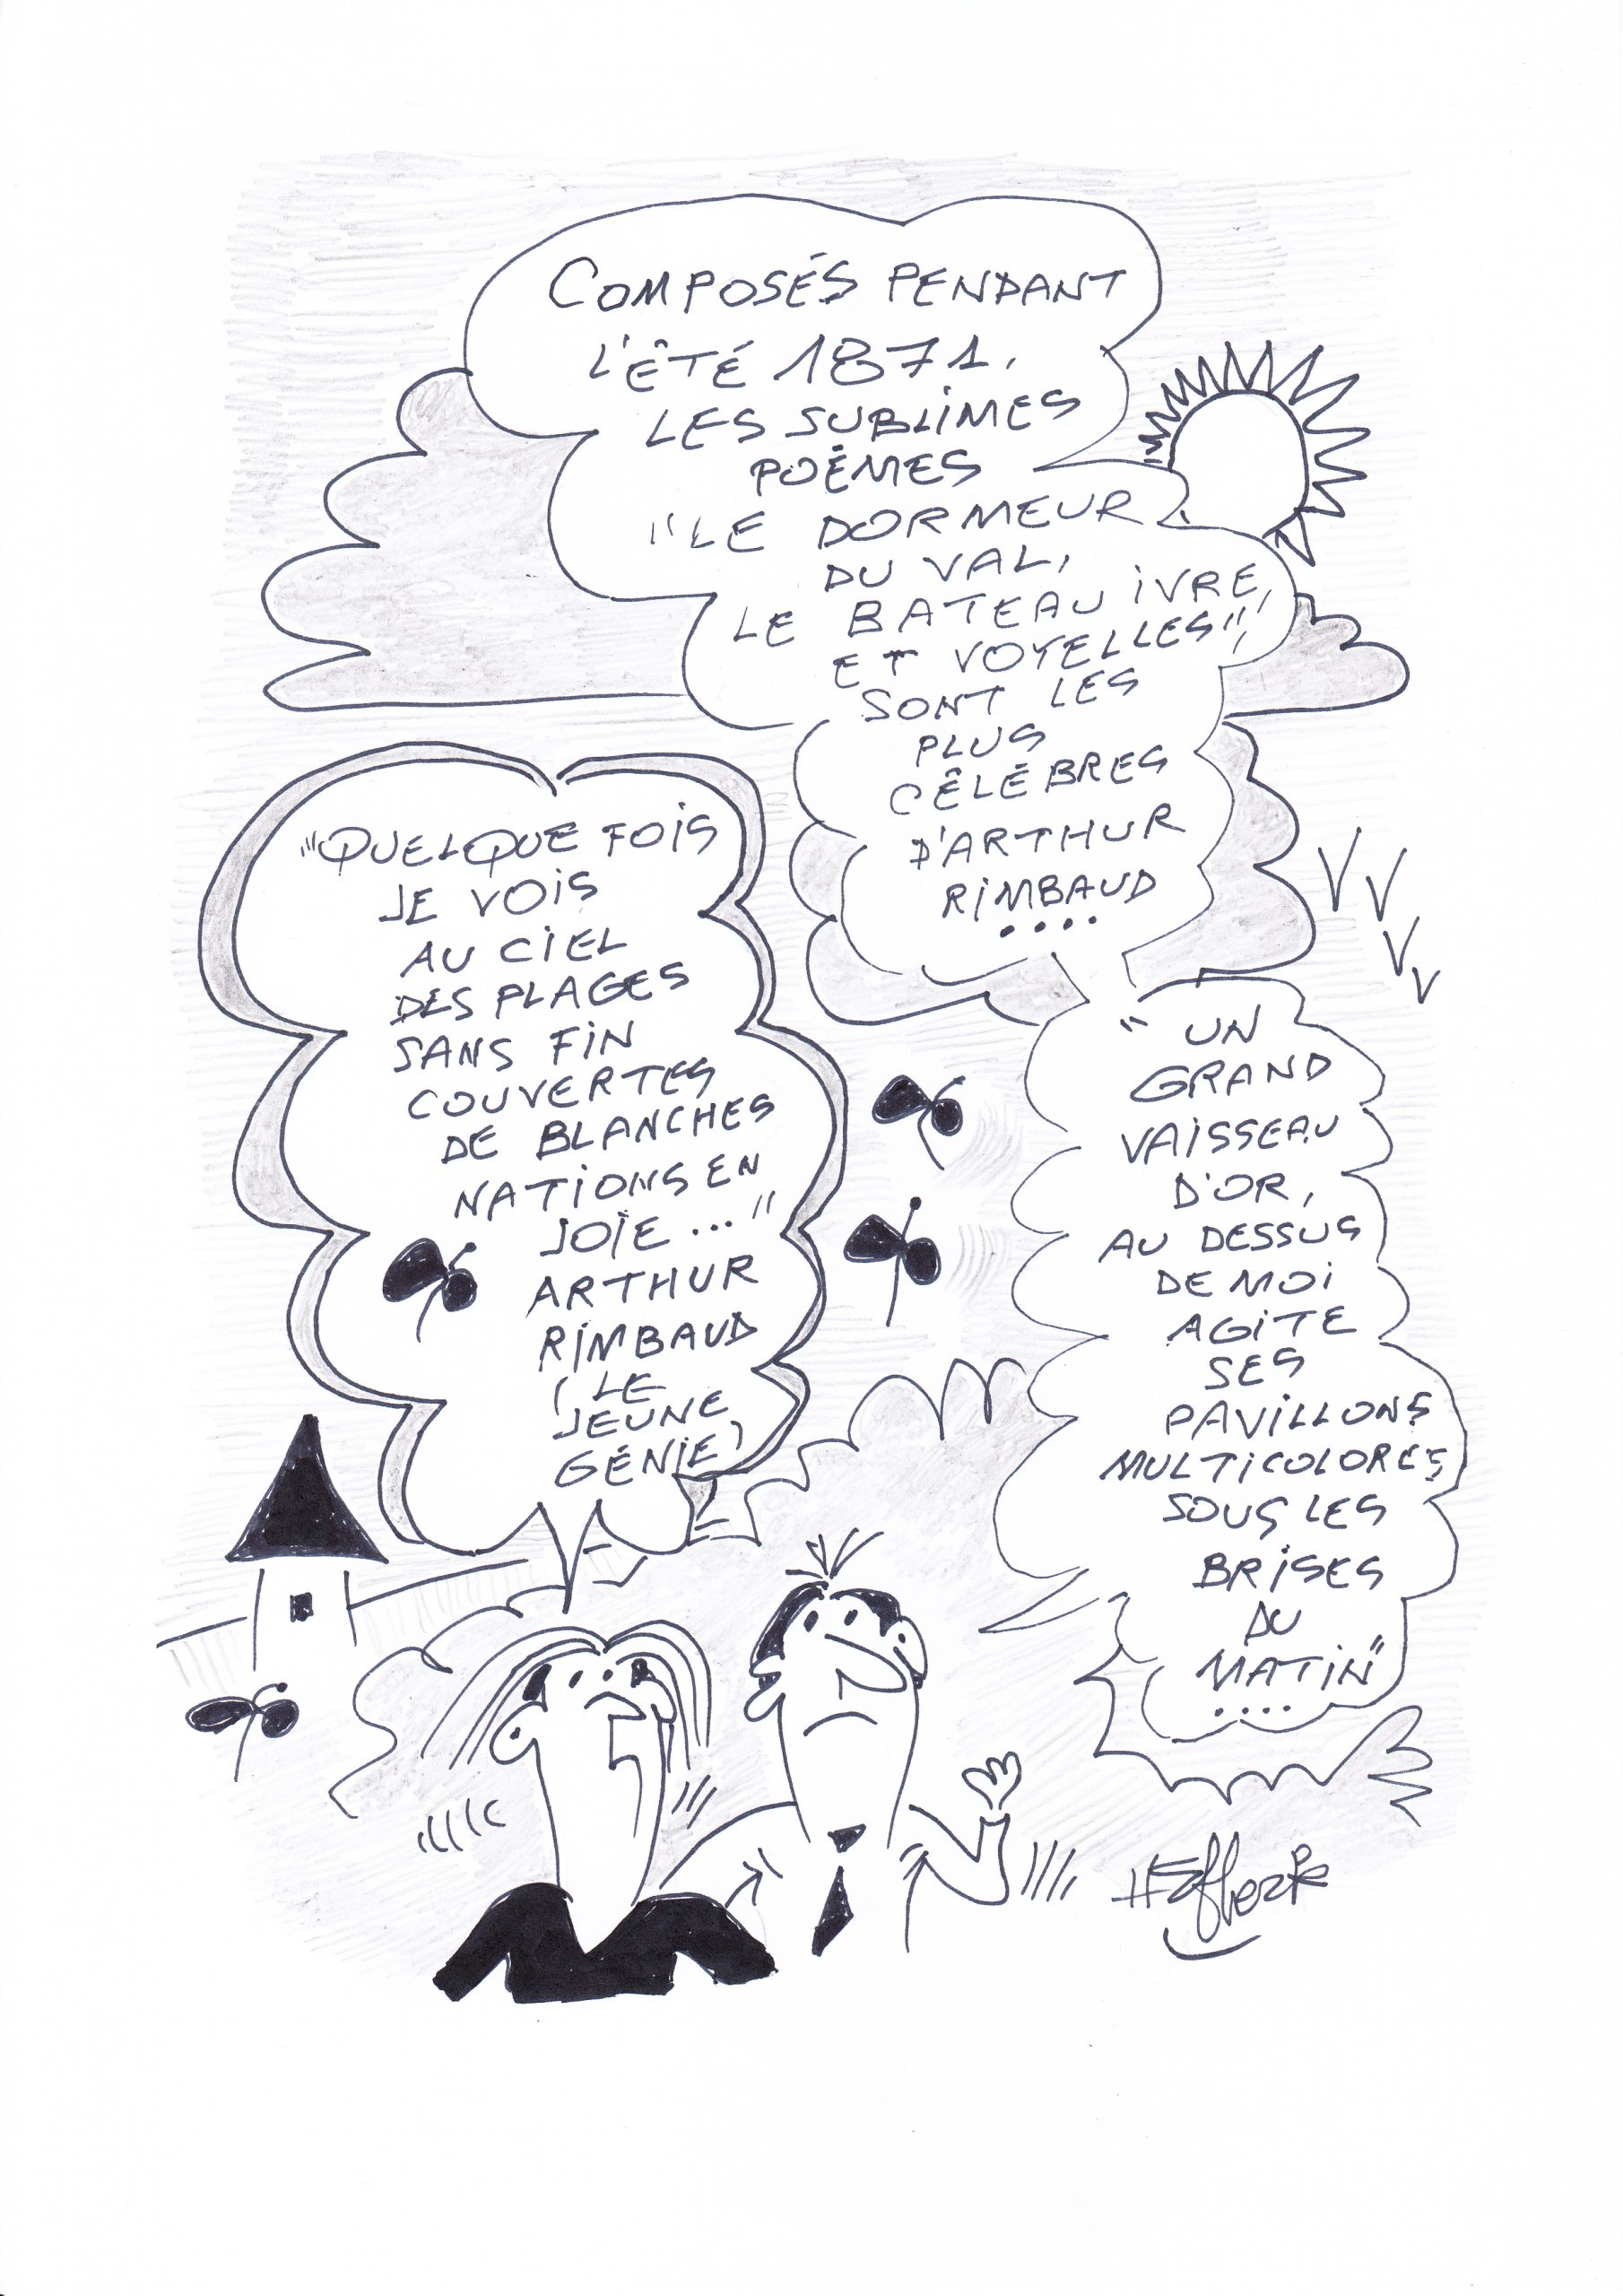 COMPOSÉS PENDANT
L'ÊTÉ 1871.
LES SUBLIMES
POÉMES
"LE DORMEUR
DU VAL,
LE BATEAU IVRE,
ET VOYELLES",
SONT LES
PLUS
CÊLÉBRES
D'ARTHUR
RIMBAUD
....
"QUELQUE FOIS
JE VOIS
AU CIEL
DES PLAGES
SANS FIN
COUVERTES
DE BLANCHES
NATIONS EN
JOÏE ..."
ARTHUR
RIMBAUD
(LE
JEUNE
GÉNIE)
"UN
GRAND
VAISSEAU
D'OR,
AU DESSUS
DE MOI
AGITE
SES
PAVILLONS
MULTICOLORES
SOUS LES
BRISES
DU
MATIN"
....